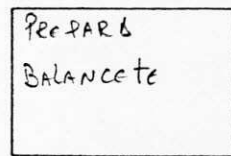 PREPARA
BALANCETE